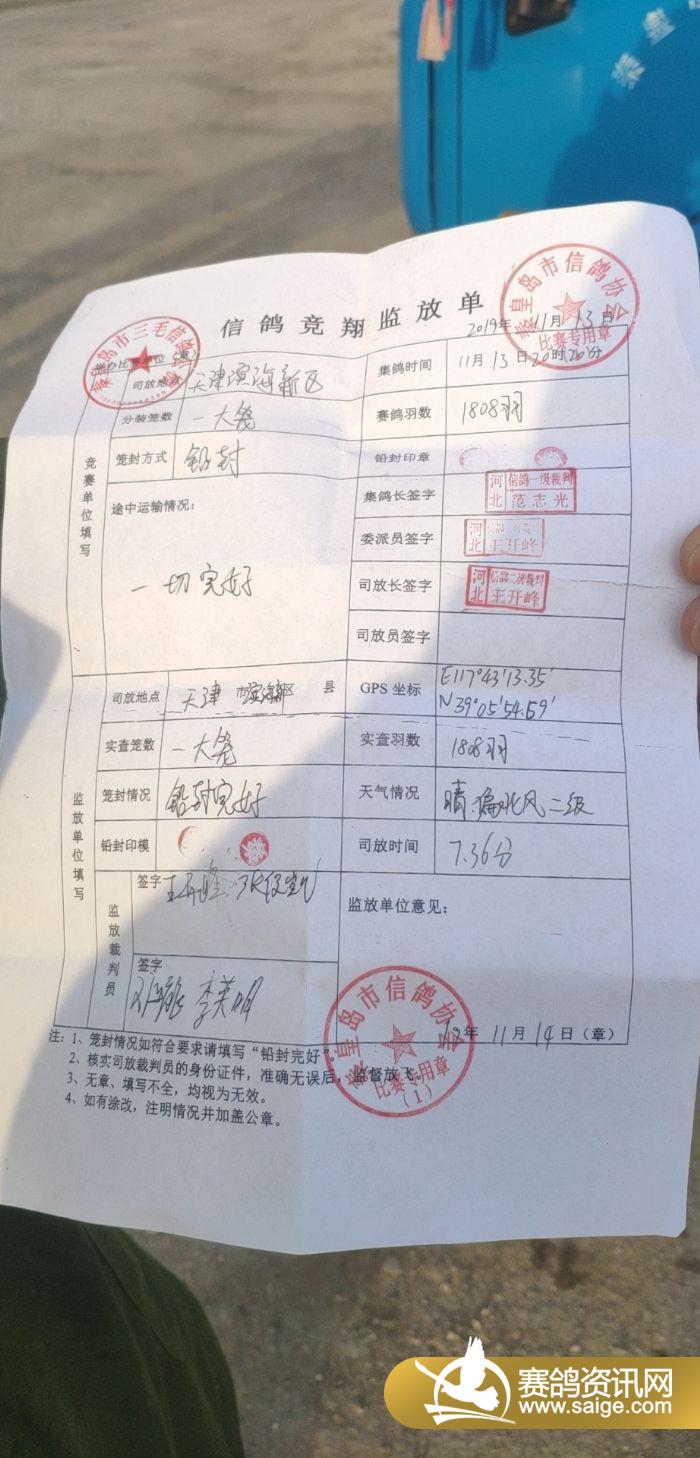 信鸽竞翔监放单
2019年 11月 13日
秦皇岛市信鸽协会
比赛专用章
秦皇岛市三毛
举办比赛单位（章）
竞赛单位填写
司放地点 天津滨海新区 集鸽时间 11月13日20时20分
分装笼数 一大笼 赛鸽羽数 1808羽
笼封方式 铅封 铅封印章
途中运输情况： 集鸽长签字 河北 信鸽一级裁判 范志光
一切完好 委派员签字 河北 王开峰
司放长签字 河北 信鸽二级裁判 王开峰
司放员签字
监放单位填写
司放地点 天津 市 滨海新区 县 GPS 坐标 E117°43′13.35′
N39°05′54.69′
实查笼数 一大笼 实查羽数 1808羽
笼封情况 铅封完好 天气情况 晴 偏北风二级
铅封印模 司放时间 7.36分
监放裁判员
签字 王开峰
监放单位意见：
签字 李英明
秦皇岛市信鸽协会
比赛专用章
（1）
19年 11月 14日（章）
注：1、笼封情况如符合要求请填写“铅封完好”。
2、核实司放裁判员的身份证件，准确无误后，监督放飞。
3、无章、填写不全，均视为无效。
4、如有涂改，注明情况并加盖公章。
赛鸽资讯网
www.saige.com